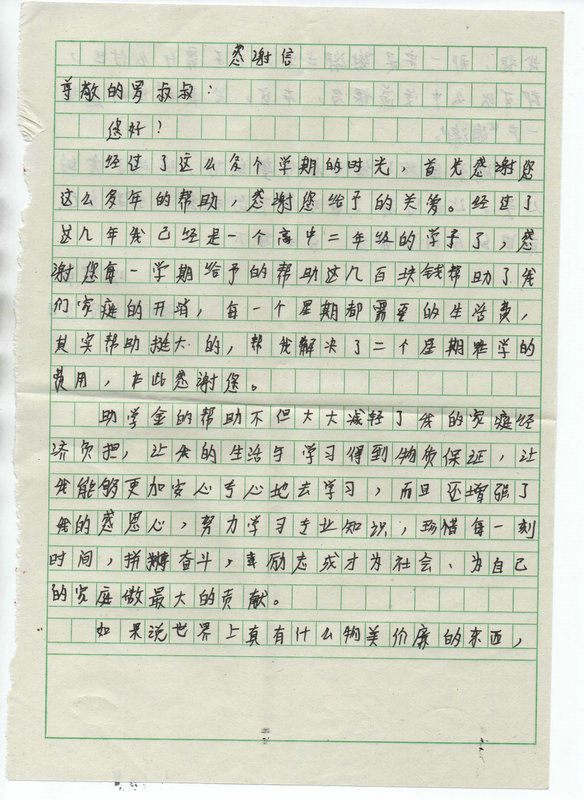 感谢信
尊敬的罗叔叔：
您好！
经过了这么多个学期的时光，首先感谢您
这么多年的帮助，感谢您给予的关爱。经过了
这几年我已经是一个高中二年级的学子了，感
谢您每一学期给予的帮助这几百块钱帮助了我
们家庭的开销，每一个星期都需要的生活费，
其实帮助挺大的，帮我解决了二个星期上学的
费用，在此感谢您。
助学金的帮助不但大大减轻了我的家庭经
济负担，让我的生活与学习得到物质保证，让
我能够更加安心专心地去学习，而且还增强了
我的感恩心，努力学习专业知识，珍惜每一刻
时间，拼搏奋斗，励志成才为社会、为自己
的家庭做最大的贡献。
如果说世界上真有什么物美价廉的东西，